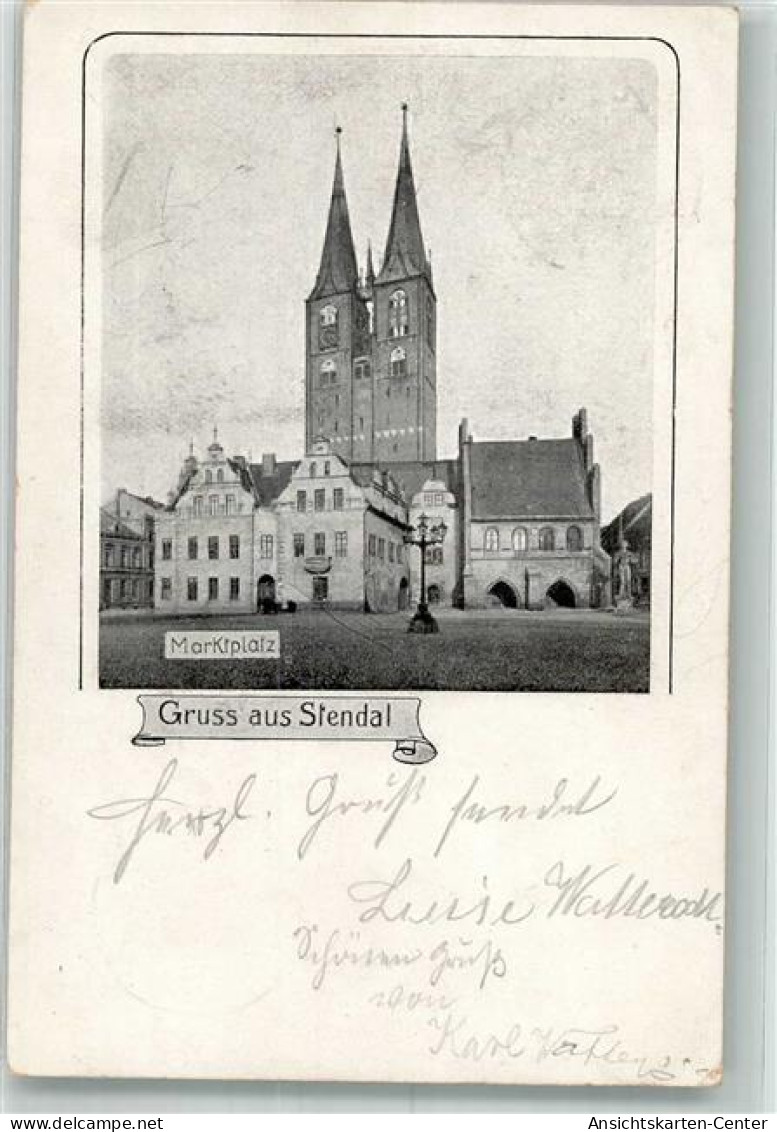 Marktplatz
Gruss aus Stendal
Herzl. Gruß sendet
Luise Watterodt
Schönen Gruß
von
Karl
delcampe.net
Ansichtskarten-Center